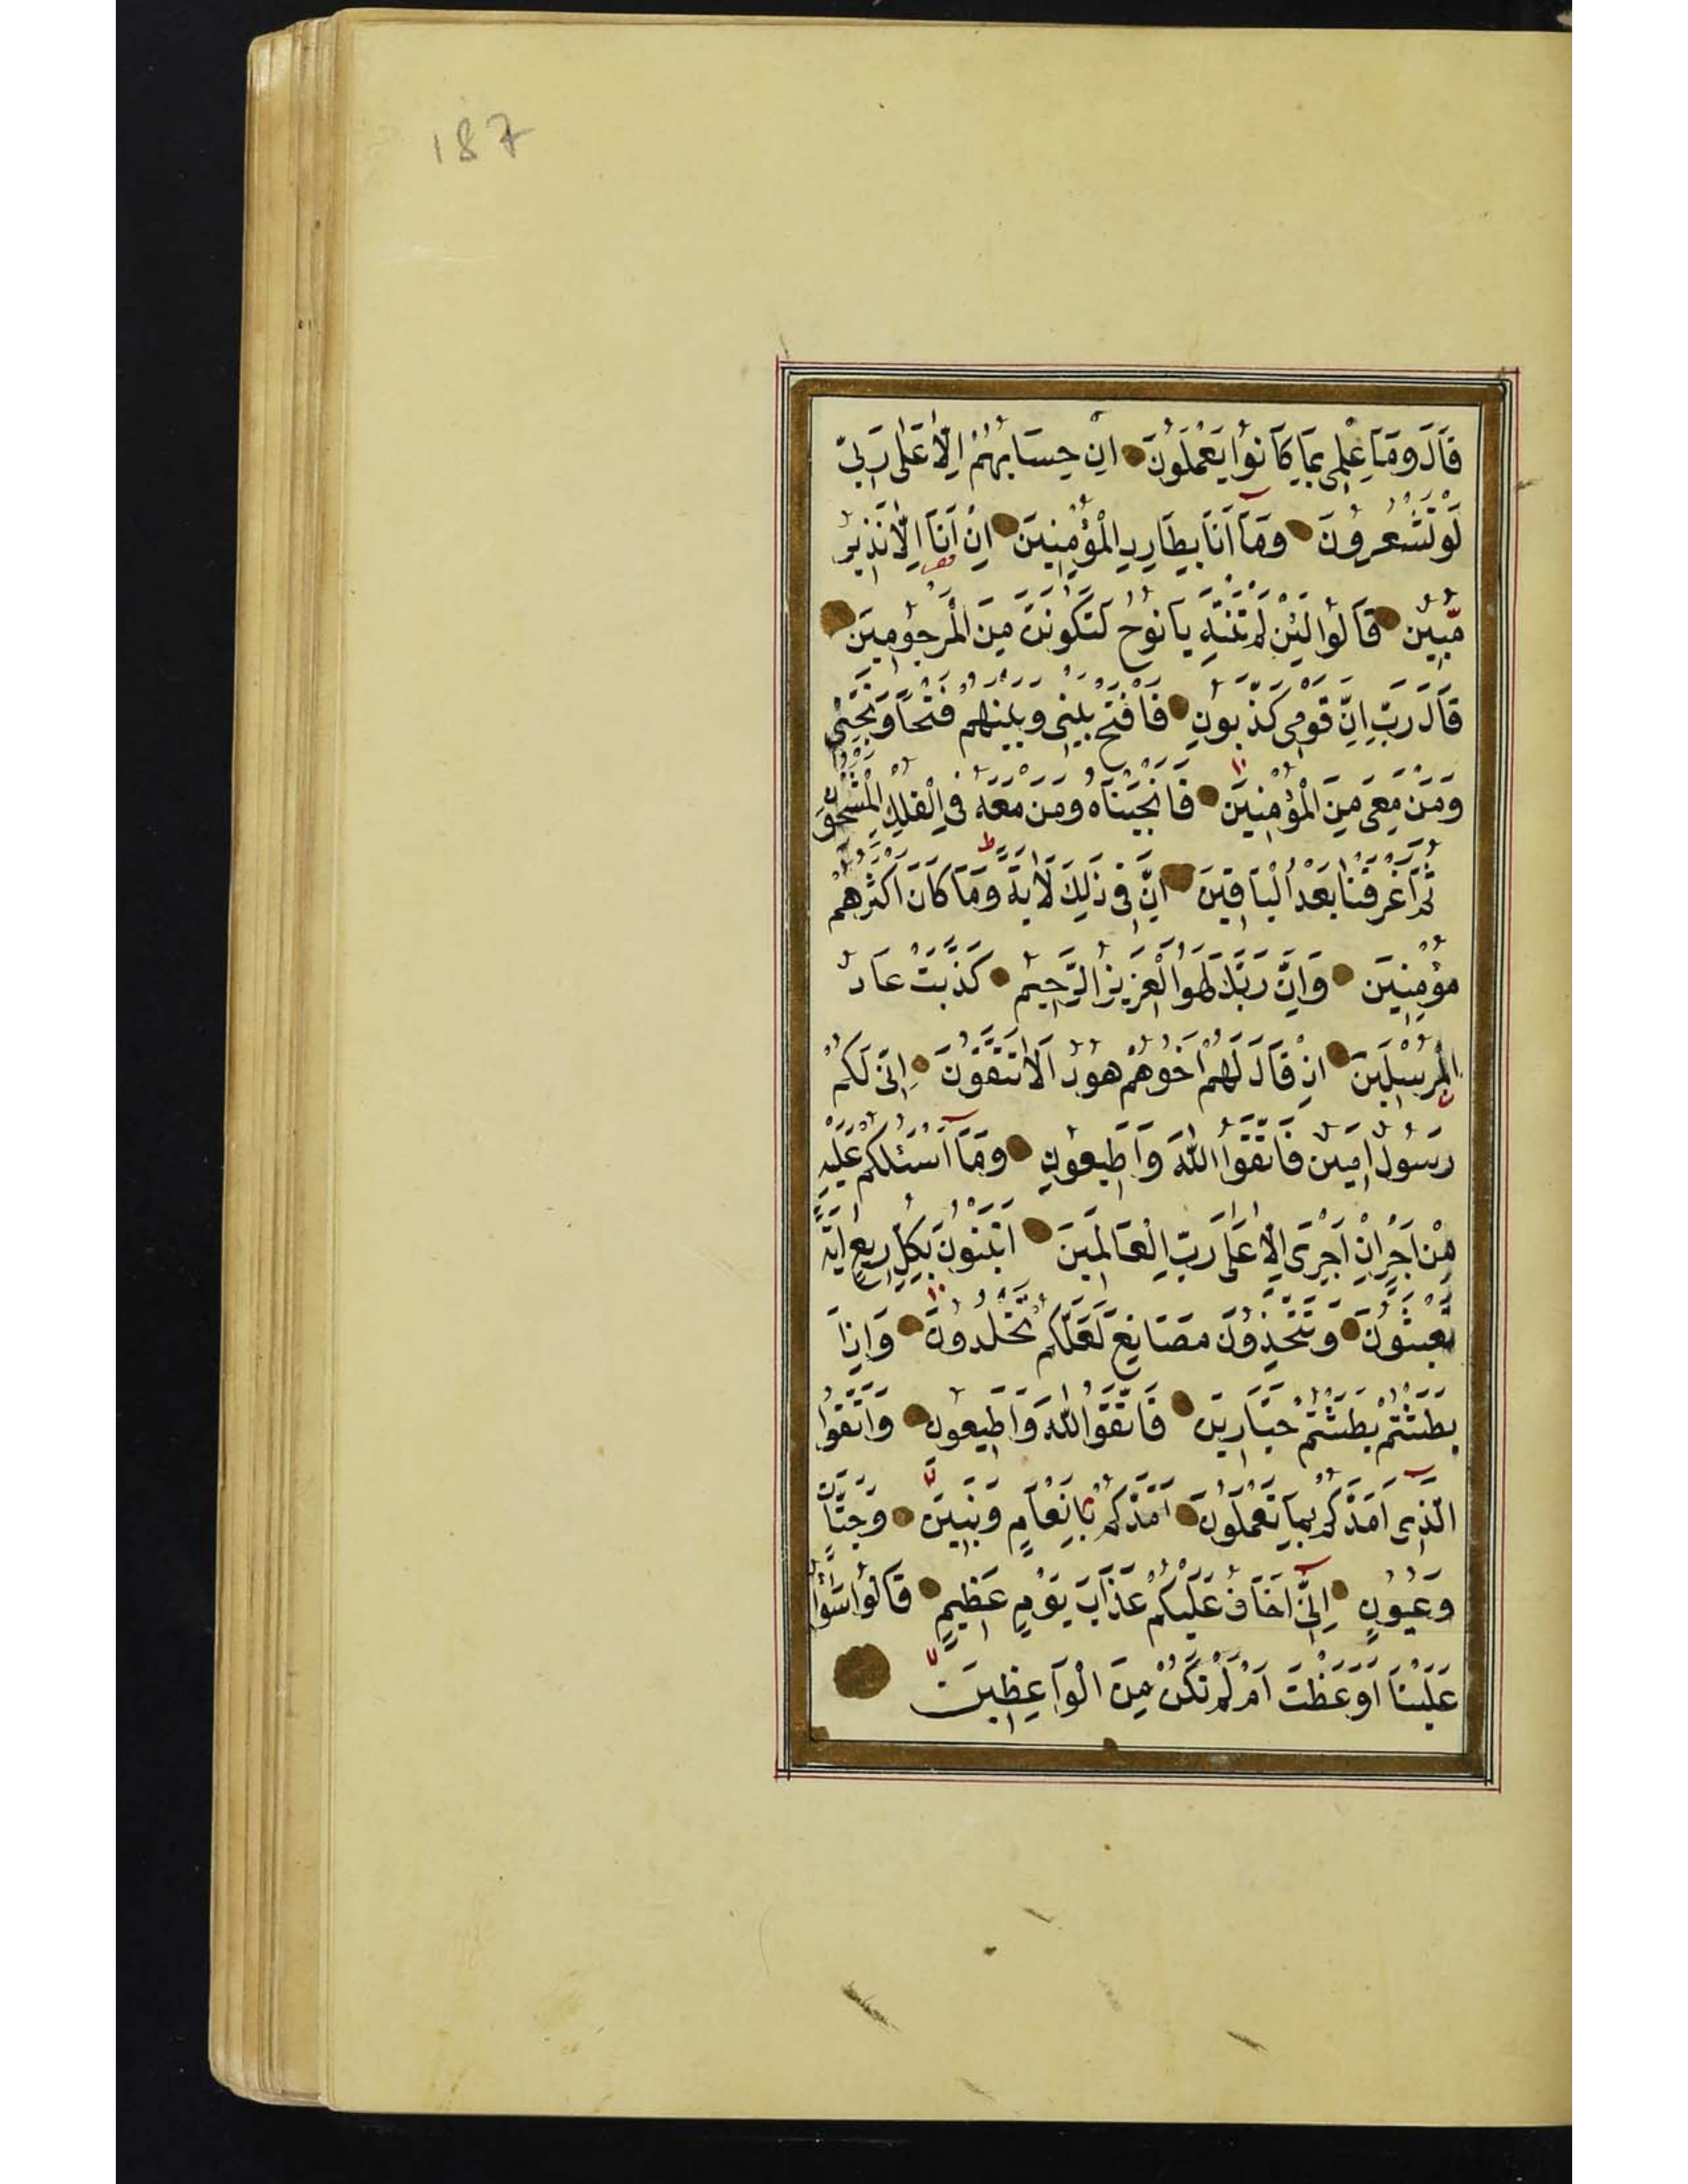 187
قَالَ وَمَا عِلْمِى بِمَا كَانُوا يَعْمَلُونَ اِنْ حِسَابُهُمْ اِلَّا عَلٰى رَبّى
لَوْ تَشْعُرُونَ وَمَآ اَنَا بِطَارِدِ الْمُؤْمِنِينَ اِنْ اَنَا اِلَّا نَذِيرٌ
مُّبِينٌ قَالُوا لَئِنْ لَمْ تَنْتَهِ يَا نُوحُ لَتَكُونَنَّ مِنَ الْمَرْجُومِينَ
قَالَ رَبِّ اِنَّ قَوْمِى كَذَّبُونِ فَافْتَحْ بَيْنِى وَبَيْنَهُمْ فَتْحًا وَنَجِّنِى
وَمَنْ مَعِىَ مِنَ الْمُؤْمِنِينَ فَاَنْجَيْنَاهُ وَمَنْ مَعَهُ فِى الْفُلْكِ الْمَشْحُونِ
ثُمَّ اَغْرَقْنَا بَعْدُ الْبَاقِينَ اِنَّ فِى ذٰلِكَ لَاٰيَةً وَمَا كَانَ اَكْثَرُهُمْ
مُؤْمِنِينَ وَاِنَّ رَبَّكَ لَهُوَ الْعَزِيزُ الرَّحِيمُ كَذَّبَتْ عَادٌ
الْمُرْسَلِينَ اِذْ قَالَ لَهُمْ اَخُوهُمْ هُودٌ اَلَا تَتَّقُونَ اِنِّى لَكُمْ
رَسُولٌ اَمِينٌ فَاتَّقُوا اللّٰهَ وَاَطِيعُونِ وَمَآ اَسْئَلُكُمْ عَلَيْهِ
مِنْ اَجْرٍ اِنْ اَجْرِىَ اِلَّا عَلٰى رَبِّ الْعَالَمِينَ اَتَبْنُونَ بِكُلِّ رِيعٍ اٰيَةً
تَعْبَثُونَ وَتَتَّخِذُونَ مَصَانِعَ لَعَلَّكُمْ تَخْلُدُونَ وَاِذَا
بَطَشْتُمْ بَطَشْتُمْ جَبَّارِينَ فَاتَّقُوا اللّٰهَ وَاَطِيعُونِ وَاتَّقُوا
الَّذِى اَمَدَّكُمْ بِمَا تَعْمَلُونَ اَمَدَّكُمْ بِاَنْعَامٍ وَبَنِينَ وَجَنَّاتٍ
وَعُيُونٍ اِنِّىٓ اَخَافُ عَلَيْكُمْ عَذَابَ يَوْمٍ عَظِيمٍ قَالُوا سَوَآءٌ
عَلَيْنَا اَوَعَظْتَ اَمْ لَمْ تَكُنْ مِنَ الْوَاعِظِينَ